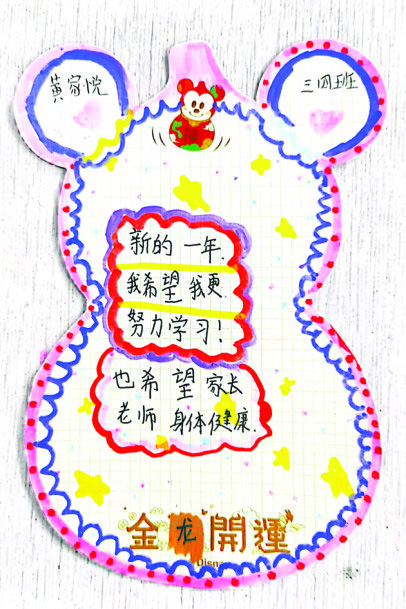 黄家悦
三四班
新的一年.
我希望我更
努力学习!
也希望家长
老师身体健康.
金龙開運
Disn